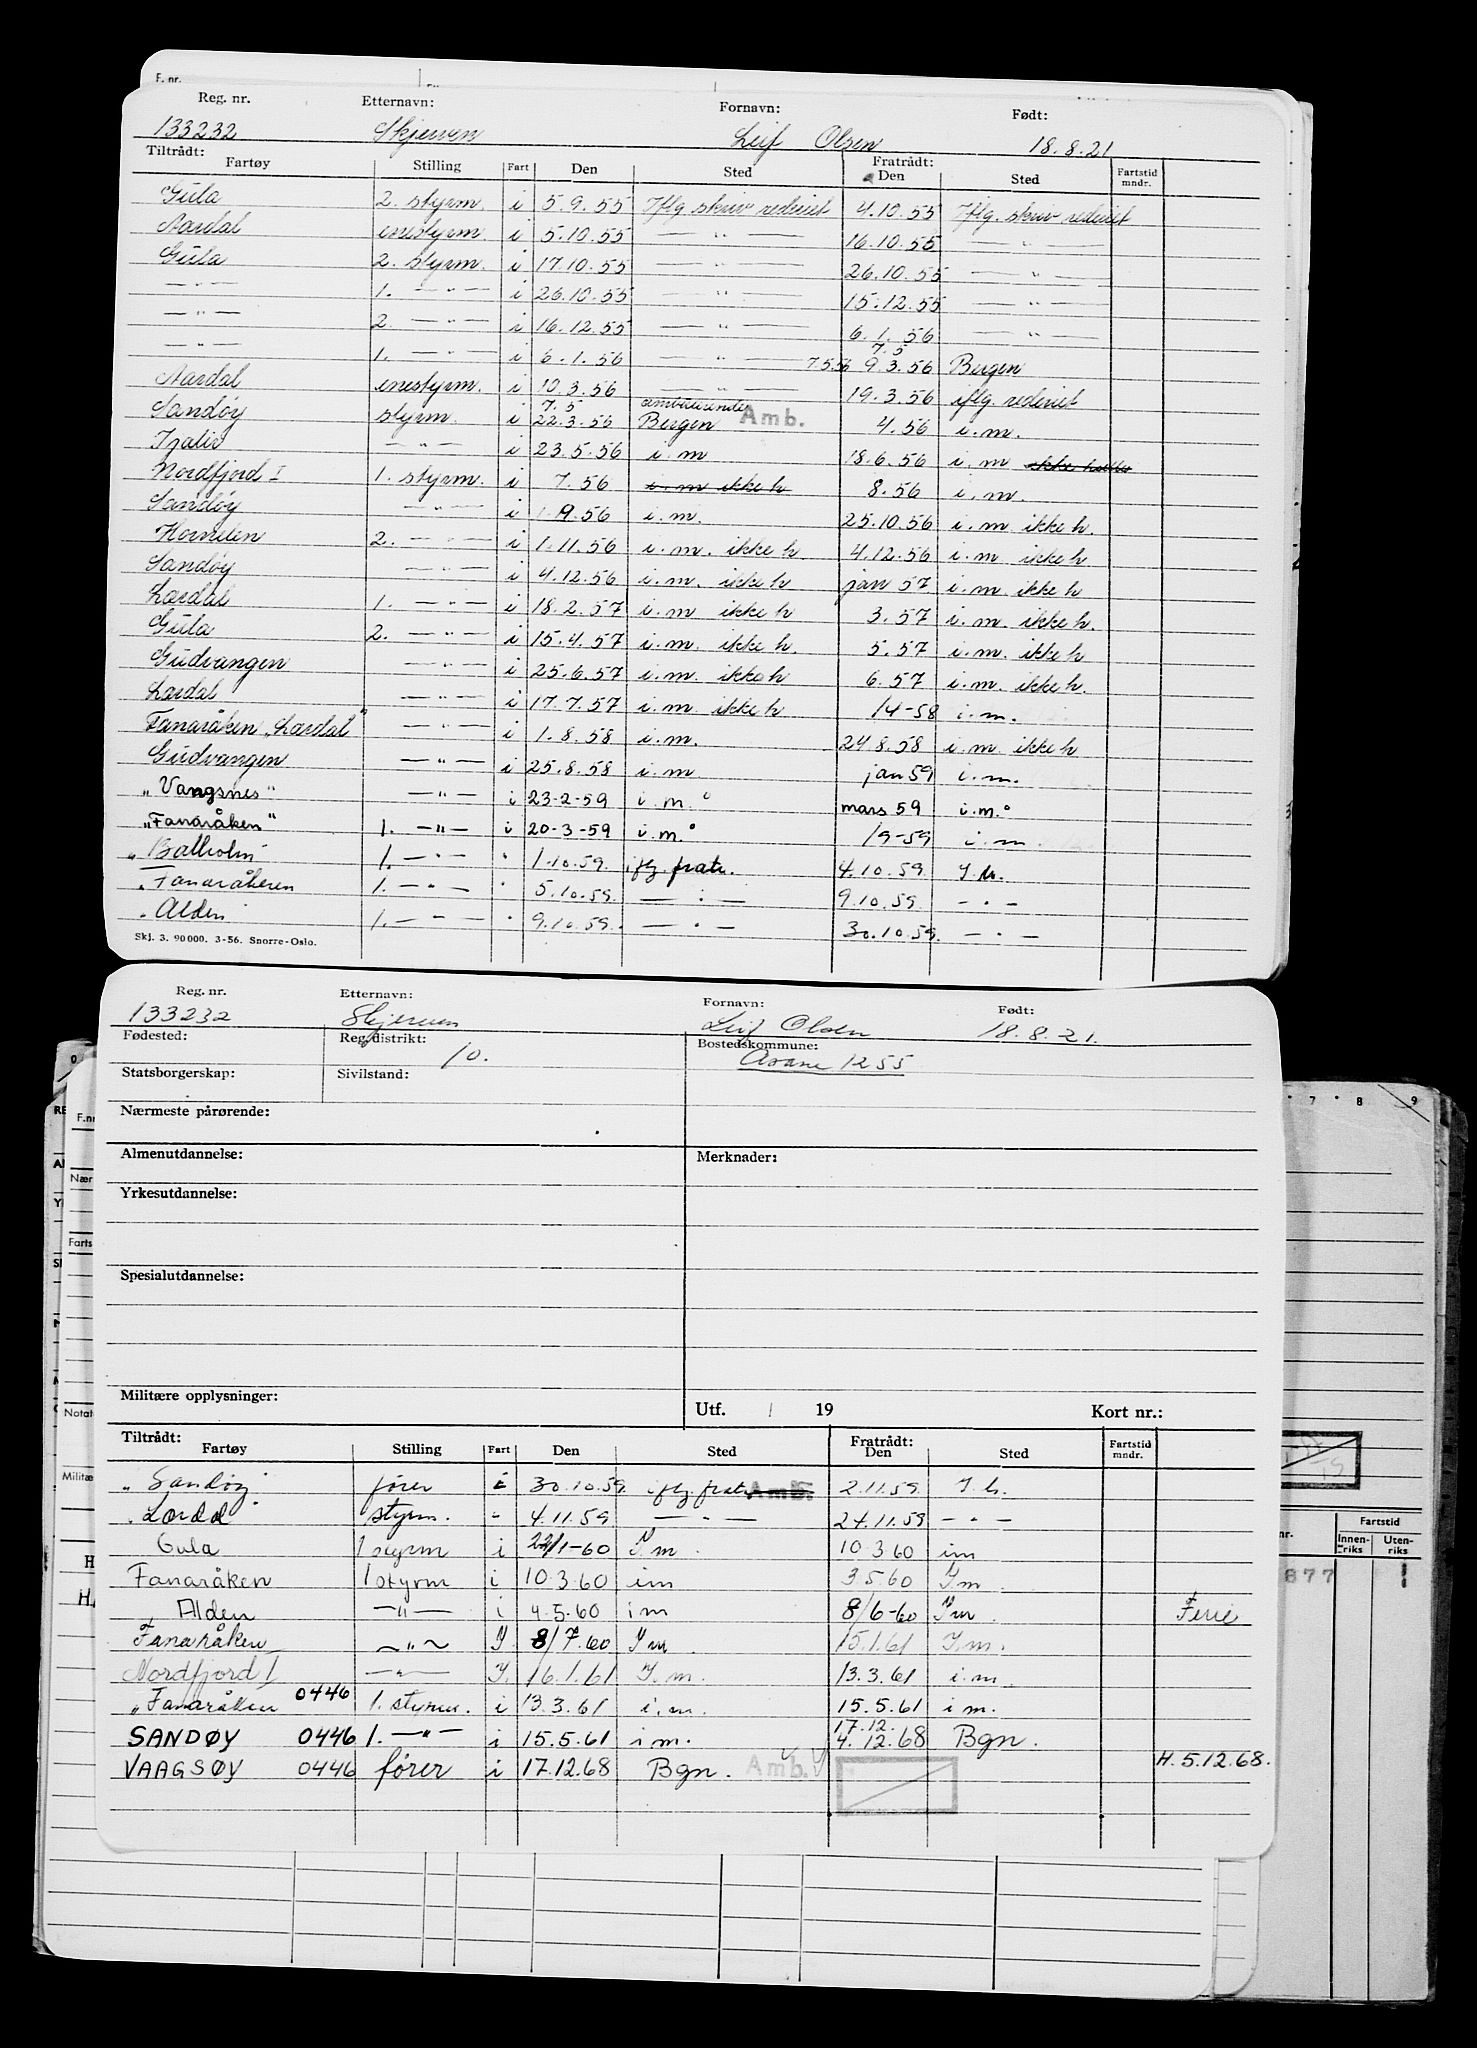 F. nr.
Reg. nr. Etternavn: Fornavn: Født:
133232 Skjerven Leif Olsen 18.8.21
Tiltrådt: Fratrådt:
Fartøy Stilling Fart Den Sted Den Sted Fartstid mndr.
Gula 2. styrm. i 5.9.55 Iflg skriv rederiet 4.10.55 Iflg. skriv rederiet
Aardal enestyrm. i 5.10.55 — " — 16.10.55 — " —
Gula 2. styrm. i 17.10.55 — " — 26.10.55 — " —
— " — 1. — " — i 26.10.55 — " — 15.12.55 — " —
— " — 2. — " — i 16.12.55 — " — 6.1.56 — " —
— " — 1. — " — i 6.1.56 — " — 7.5.56 7.5 9.3.56 Bergen
Aardal enestyrm. i 10.3.56 — " — 19.3.56 iflg. rederiet
Sandøy styrm. i 7.5 22.3.56 ambulerende Bergen Amb. 4.56 i.m.
— " — i 23.5.56 i.m 18.6.56 i.m
Nordfjord I 1. styrm. i 7.56 i.m ikke h 8.56 i.m.
Sandøy — " — i 1.9.56 i.m. 25.10.56 i.m. ikke h.
Hornelen 2. — " — i 1.11.56 i.m. ikke h 4.12.56 i.m ikke h
Sandøy — " — i 4.12.56 i.m. ikke h jan 57 i.m ikke h
Lærdal 1. — " — i 18.2.57 i.m ikke h 3.57 i.m. ikke h.
Gula 2. — " — i 15.4.57 i.m. ikke h. 5.57 i.m. ikke h
Gudvangen — " — i 25.6.57 i.m. ikke h 6.57 i.m. ikke h.
Lærdal — " — i 17.7.57 i.m ikke h 1/4-58 i.m.
Fanaråken "Lærdal" — " — i 1.8.58 i.m. 24.8.58 i.m. ikke h
Gudvangen — " — i 25.8.58 i.m jan 59 i.m.
"Vangsnes" — " — i 23-2-59 i.m. mars 59 i.m.
"Fanaråken" 1. — " — i 20-3-59 i.m. 1/9-59 i.m.
"Balholm" 1. — " — " 1.10.59. iflg. fratr. 4.10.59. I.h.
"Fanaråken 1. — " — " 5.10.59. — " — 9.10.59. — " —
"Alden 1. — " — " 9.10.59. — " — 30.10.59. — " —
Skj. 3. 90000. 3-56. Snorre-Oslo.
Reg. nr. Etternavn: Fornavn: Født:
133232 Skjerven Leif Olsen 18.8.21.
Fødested: Reg. distrikt: 10. Bostedskommune: Åsane 1255
Statsborgerskap: Sivilstand:
Nærmeste pårørende:
Almenutdannelse: Merknader:
Yrkesutdannelse:
Spesialutdannelse:
Militære opplysninger: Utf. / 19 Kort nr.:
Tiltrådt: Fratrådt:
Fartøy Stilling Fart Den Sted Den Sted Fartstid mndr.
"Sandøy" fører i 30.10.59. iflg. fratr. Amb. 2.11.59. I.h.
"Lærdal" styrm. " 4.11.59. — " — 24.11.59 — " —
Gula 1 styrm i 22/1-60 I m. 10.3.60 im
Fanaråken 1 styrm i 10.3.60 im 3.5.60 I m
Alden — " — i 4.5.60 im 8/6-60 I m. Ferie
Fanaråken — " — I 8/7.60 I m 15.1.61 I.m.
Nordfjord I — " — I. 16.1.61 I.m. 13.3.61 i.m
"Fanaråken 0446 1. styrm. i 13.3.61 i.m. 15.5.61 im.
SANDØY 0446 1. — " — i 15.5.61 im. 17.12. 4.12.68 Bgn.
VAAGSØY 0446 fører i 17.12.68 Bgn. Amb. H. 5.12.68.
F.nr
Nær
Farts
Notat
Militæ
7 8 9
nr. Fartstid
Innenriks Utenriks
877